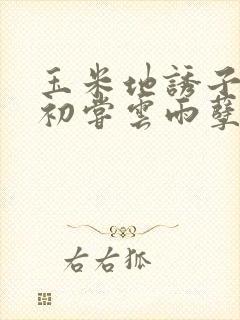 玉米地誘子
初嘗雲雨孽
右右狐